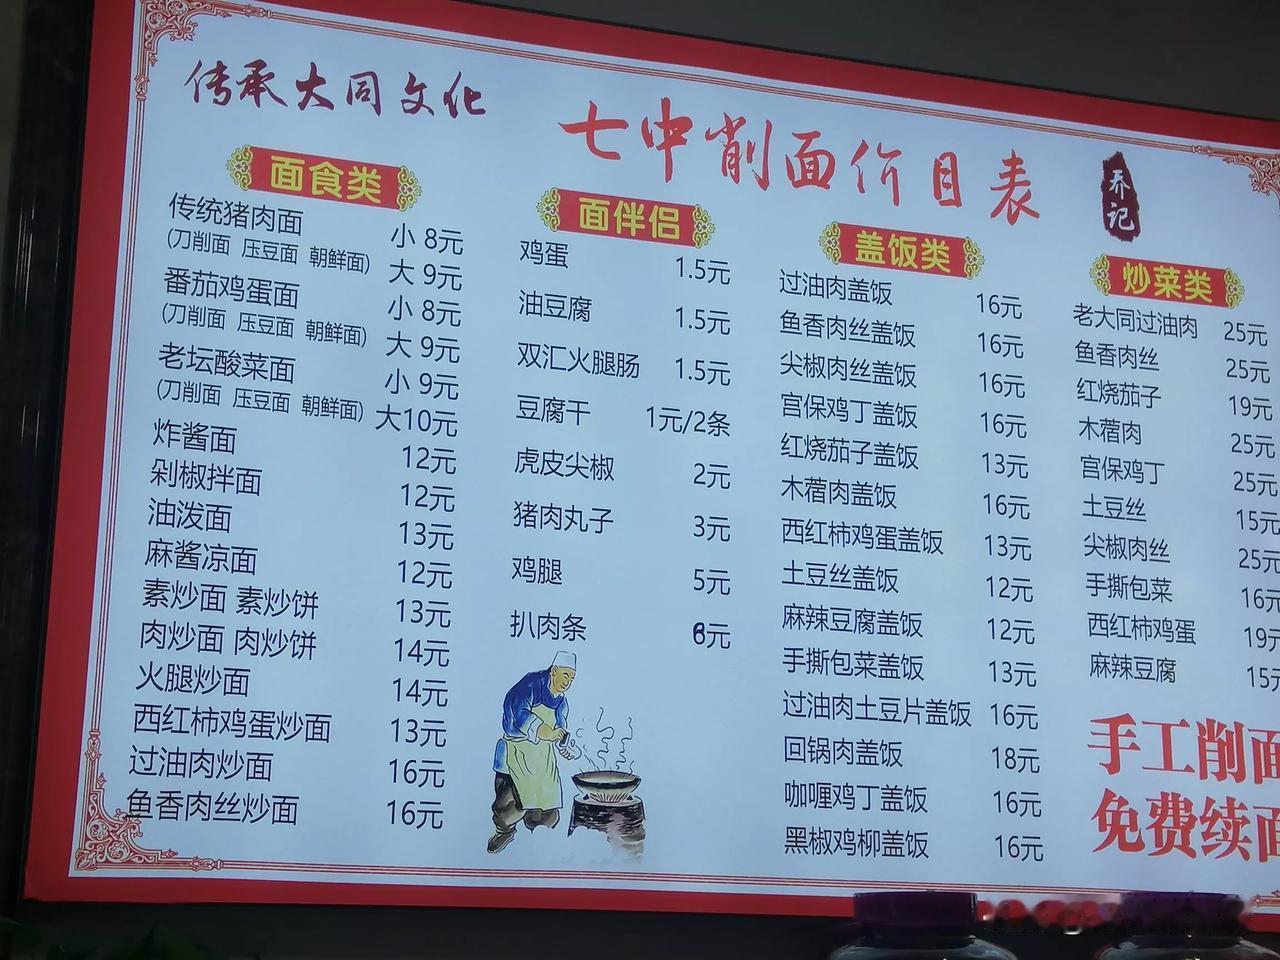 传承大同文化
七中削面价目表
乔记
面食类
传统猪肉面 小 8元
(刀削面 压豆面 朝鲜面) 大 9元
番茄鸡蛋面 小 8元
(刀削面 压豆面 朝鲜面) 大 9元
老坛酸菜面 小 9元
(刀削面 压豆面 朝鲜面) 大10元
炸酱面 12元
剁椒拌面 12元
油泼面 13元
麻酱凉面 12元
素炒面 素炒饼 13元
肉炒面 肉炒饼 14元
火腿炒面 14元
西红柿鸡蛋炒面 13元
过油肉炒面 16元
鱼香肉丝炒面 16元
面伴侣
鸡蛋 1.5元
油豆腐 1.5元
双汇火腿肠 1.5元
豆腐干 1元/2条
虎皮尖椒 2元
猪肉丸子 3元
鸡腿 5元
扒肉条 元
盖饭类
过油肉盖饭 16元
鱼香肉丝盖饭 16元
尖椒肉丝盖饭 16元
宫保鸡丁盖饭 16元
红烧茄子盖饭 13元
木蓿肉盖饭 16元
西红柿鸡蛋盖饭 13元
土豆丝盖饭 12元
麻辣豆腐盖饭 12元
手撕包菜盖饭 13元
过油肉土豆片盖饭 16元
回锅肉盖饭 18元
咖喱鸡丁盖饭 16元
黑椒鸡柳盖饭 16元
炒菜类
老大同过油肉 25元
鱼香肉丝 25元
红烧茄子 19元
木蓿肉 25元
宫保鸡丁 25元
土豆丝 15元
尖椒肉丝 25元
手撕包菜 16元
西红柿鸡蛋 19元
麻辣豆腐 15元
手工削面
免费续面